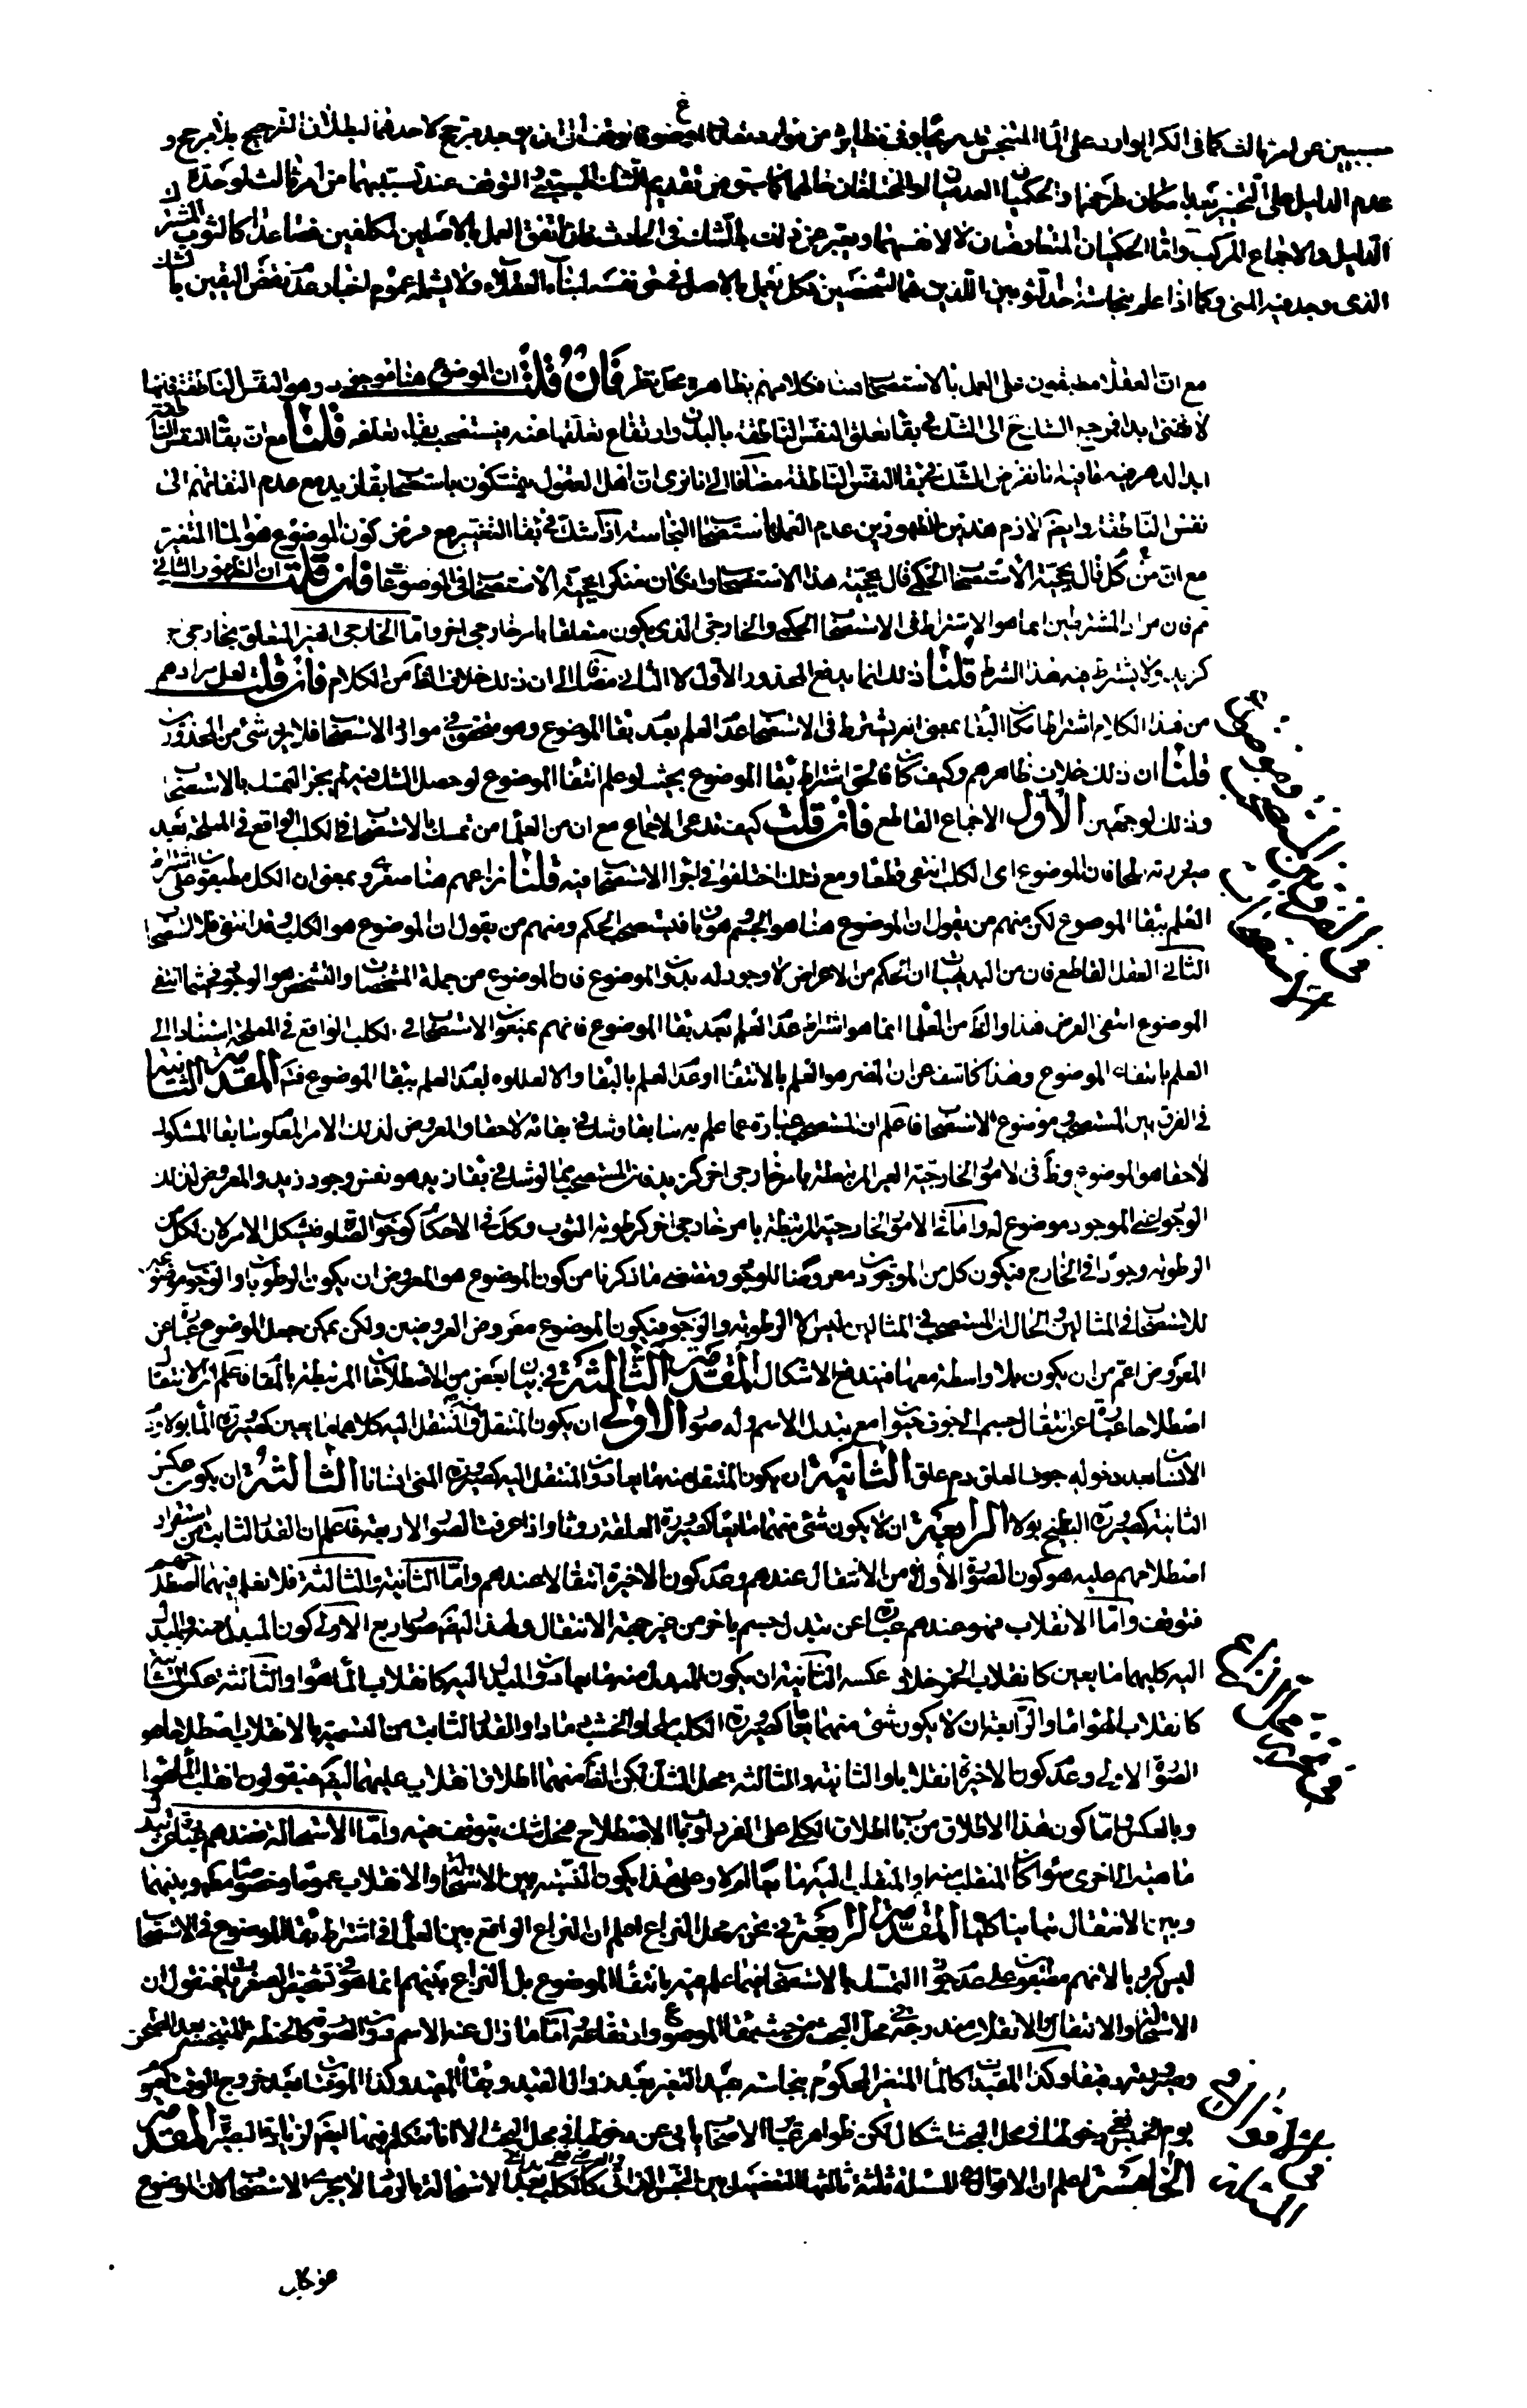 مسببين عن امر ثالث كما فى الكر الوارد على الماء المتنجس
عدم الدليل على التخيير
الدليل والاجماع المركب واما الحكمان المتعارضان لا لانفسهما ويعبر عن ذلك بالشك فى الحادث فان اتفق العمل بالاصلين لمكلفين فصاعدا كالثوب المشترك
الذى وجد فيه المنى وكما اذا علم نجاسة احد الثوبين اللذين هما لشخصين فكل يعمل بالاصل فى حق نفسه لبناء العقلاء ولا يشمله عموم اخبار عدم نقض اليقين بالشك
مع ان العقلاء مطبقون على العمل بالاستصحاب هنا فكلامهم بظاهره محل نظر فان قلت ان الموضوع هنا موجود وهو النفس الناطقة فانها
لا تفنى ابدا فمرجع الشك الى الشك فى بقاء تعلق النفس الناطقة بالبدن وارتفاع تعلقها عنه فيستصحب بقاء تعلقه قلنا مع ان بقاء النفس الناطقة
ابدا الدهر فيه ما فيه انا نفرض الشك فى بقاء النفس الناطقة مضافا الى انا نرى ان اهل العقول يتمسكون باستصحاب بقاء زيد مع عدم التفاتهم الى
نفس الناطقة وايضا لازم هذين الظهورين عدم العمل باستصحاب النجاسة اذا شك فى بقاء التغير مع فرض كون الموضوع هو الماء المتغير
مع ان من قال بحجية الاستصحاب الحكمى قال بحجية هذا الاستصحاب وان كان منكرا لحجية الاستصحاب فى الموضوعات فان قلت ان الظهور الثانى
تم فان مراد المشترطين انما هو الاشتراط فى الاستصحاب الحكمى والخارجى الذى يكون متعلقا بامر خارجى اخر واما الخارجى الغير المتعلق بخارجى
كزيد ولا يشترط فيه هذا الشرط قلنا ذلك انما يدفع المحذور الاول لا الثانى مضافا الى ان ذلك خلاف الظ من الكلام فان قلت لعل مرادهم
من هذا الكلام اشتراط مكان البقاء بمعنى انه يشترط فى الاستصحاب عدم العلم بعدم بقاء الموضوع وهو متحقق فى موارد الاستصحاب فلا يرد شئ من المحذورين
قلنا ان ذلك خلاف ظاهرهم وكيف كان فالحق اشتراط بقاء الموضوع بحيث لو علم انتفاء الموضوع لو حصل الشك فيه لم يجز التمسك بالاستصحاب
وذلك لوجهين الاول الاجماع القاطع فان قلت كيف تدعى الاجماع مع ان من العلماء من تمسك بالاستصحاب فى الكلب الواقع فى المملحة بعد
صيرورته ملحا فان الموضوع اى الكلب انتفى قطعا ومع ذلك اختلفوا فى اجراء الاستصحاب فيه قلنا نزاعهم هنا صغروى بمعنى ان الكل مطبقون على اشتراط
العلم ببقاء الموضوع لكن منهم من يقول ان الموضوع هنا هو الجسم وهو باق فيستصحب الحكم ومنهم من يقول ان الموضوع هو الكلب وقد انتفى فلا استصحاب
الثانى العقل القاطع فان من البديهيات ان الحكم من الاعراض لا وجود له بدون الموضوع فان الموضوع من جملة المشخصات والتشخص هو الوجود فحيثما انتفى
الموضوع انتفى العرض هذا والظ من العلماء انما هو اشتراط عدم العلم بعدم بقاء الموضوع فانهم يمنعون الاستصحاب فى الكلب الواقع فى المملحة استنادا الى
العلم بانتفاء الموضوع وهذا كاشف عن ان المضر هو العلم بالانتفاء او عدم العلم بالبقاء والا لعللوه بعدم العلم ببقاء الموضوع فتم المقدمة الثانية
فى الفرق بين المستصحب وموضوع الاستصحاب فاعلم ان المستصحب عبارة عما علم به سابقا وشك فى بقائه لاحقا والمعروض لذلك الامر المعلوم سابقا المشكوك
لاحقا هو الموضوع وظ فى الامور الخارجية الغير المرتبطة بامر خارجى اخر كزيد فان المستصحب لو شك فى بقاء زيد هو نفس وجود زيد والمعروض لذلك
الوجود اعنى الموجود موضوع له واما فى الامور الخارجية المرتبطة بامر خارجى اخر كرطوبة الثوب وكذا فى الاحكام كوجوب الصلوة فيشكل الامر لان لكل من
الرطوبة وجودا فى الخارج فيكون كل من الموجودين معروضا للوجود ومقتضى ما ذكرنا من كون الموضوع هو المعروض ان يكون الرطوبة او الوجوب موضوعا
للاستصحاب فى المثالين والحال ان المستصحب فى المثالين ليس الا الرطوبة والوجوب فيكون الموضوع معروض المعروضين ولكن يمكن جعل الموضوع عبارة عن
المعروض اعم من ان يكون بلا واسطة او معها فيندفع الاشكال المقدمة الثالثة فى بيان بعض من الاصطلاحات المرتبطة بالمقام فاعلم ان الانتقال
اصطلاحا عبارة عن انتقال جسم الى جوف حيوان مع تبدل الاسم وله صور الاولى ان يكون المنتقل والمنتقل اليه كلاهما مايعين كصيرورة الماء بولا ودم
الانسان بعد دخوله جوف العلق دم علق الثانية ان يكون المنتقل منه مايعا دون المنتقل اليه كصيرورة المنى انسانا الثالثة ان يكون عكس
الثانية كصيرورة البطيخ بولا الرابعة ان لا يكون شئ منهما مايعا كصيرورة العلفة روثا واذا عرفت الصور الاربعة فاعلم ان القدر الثابت من استقرار
اصطلاحهم عليه هو كون الصورة الاولى من الانتقال عندهم وعدم كون الاخيرة انتقالا عندهم واما الثانية والثالثة فلا نعلم فيهما اصطلاحهم
فنتوقف واما الانقلاب فهو عندهم عبارة عن تبدل جسم باخر من غير جهة الانتقال ولهذا ايضا صور اربع الاولى كون المبدل منه والمبدل
اليه كليهما مايعين كانقلاب الخمر خلا او عكسه الثانية ان يكون المبدل منه مايعا دون المبدل اليه كانقلاب الماء هواء والثالثة عكس الثانية
كانقلاب الهواء ماء والرابعة ان لا يكون شئ منهما مايعا كصيرورة الكلب ملحا والخشب رمادا والقدر الثابت من التسمية بالانقلاب اصطلاحا هو
الصورة الاولى وعدم كون الاخيرة انقلابا والثانية والثالثة محل الشك لكن الظ منهما اطلاق انقلاب عليهما ايضا فيقولون انقلب الماء هواء
وبالعكس واما كون هذا الاطلاق من باب اطلاق الكلى على الفرد او من باب الاصطلاح فمحل شك يتوقف فيه واما الاستحالة فعندهم عبارة عن تبدل
ماهية الى اخرى سواء كان المنقلب منه او المنقلب اليه مايعا ام لا وعلى هذا يكون النسبة بين الاستحالة والانقلاب عموما وخصوصا مطلقا وبينهما
وبين الانتقال تباينا كليا المقدمة الرابعة فى تحرير محل النزاع اعلم ان النزاع الواقع بين العلماء فى اشتراط بقاء الموضوع فى الاستصحاب
ليس كبرويا لانهم مطبقون على عدم جواز التمسك بالاستصحاب فيما علم فيه بانتفاء الموضوع بل النزاع بينهم انما هو فى تشخيص الصغريات فنقول ان
الاستحالة والانتقال والانقلاب مندرجة فى محل البحث من حيث بقاء الموضوع وارتفاعه اما ما زال عنه الاسم دون الصورة كالحنطة المتنجسة بعد الطحن
وصيرورته دقيقا وكذا المقيد كالماء المتغير المحكوم بنجاسته بقيد التغير بعد زوال القيد وبقاء المقيد وكذا الموقت بعد خروج الوقت كصوم
يوم الخميس ففى دخولها فى محل البحث اشكال لكن ظواهر عبارة الاصحاب يابى عن دخولها فى محل البحث الا انا نتكلم فيها ايضا لزيادة البصيرة المقدمة
الخامسة اعلم ان الاقوال فى المسئلة ثلثة ثالثها التفصيل بين النجس الذاتى كالكلب بعد الاستحالة بالرماد لا يجرى الاستصحاب لان الموضوع